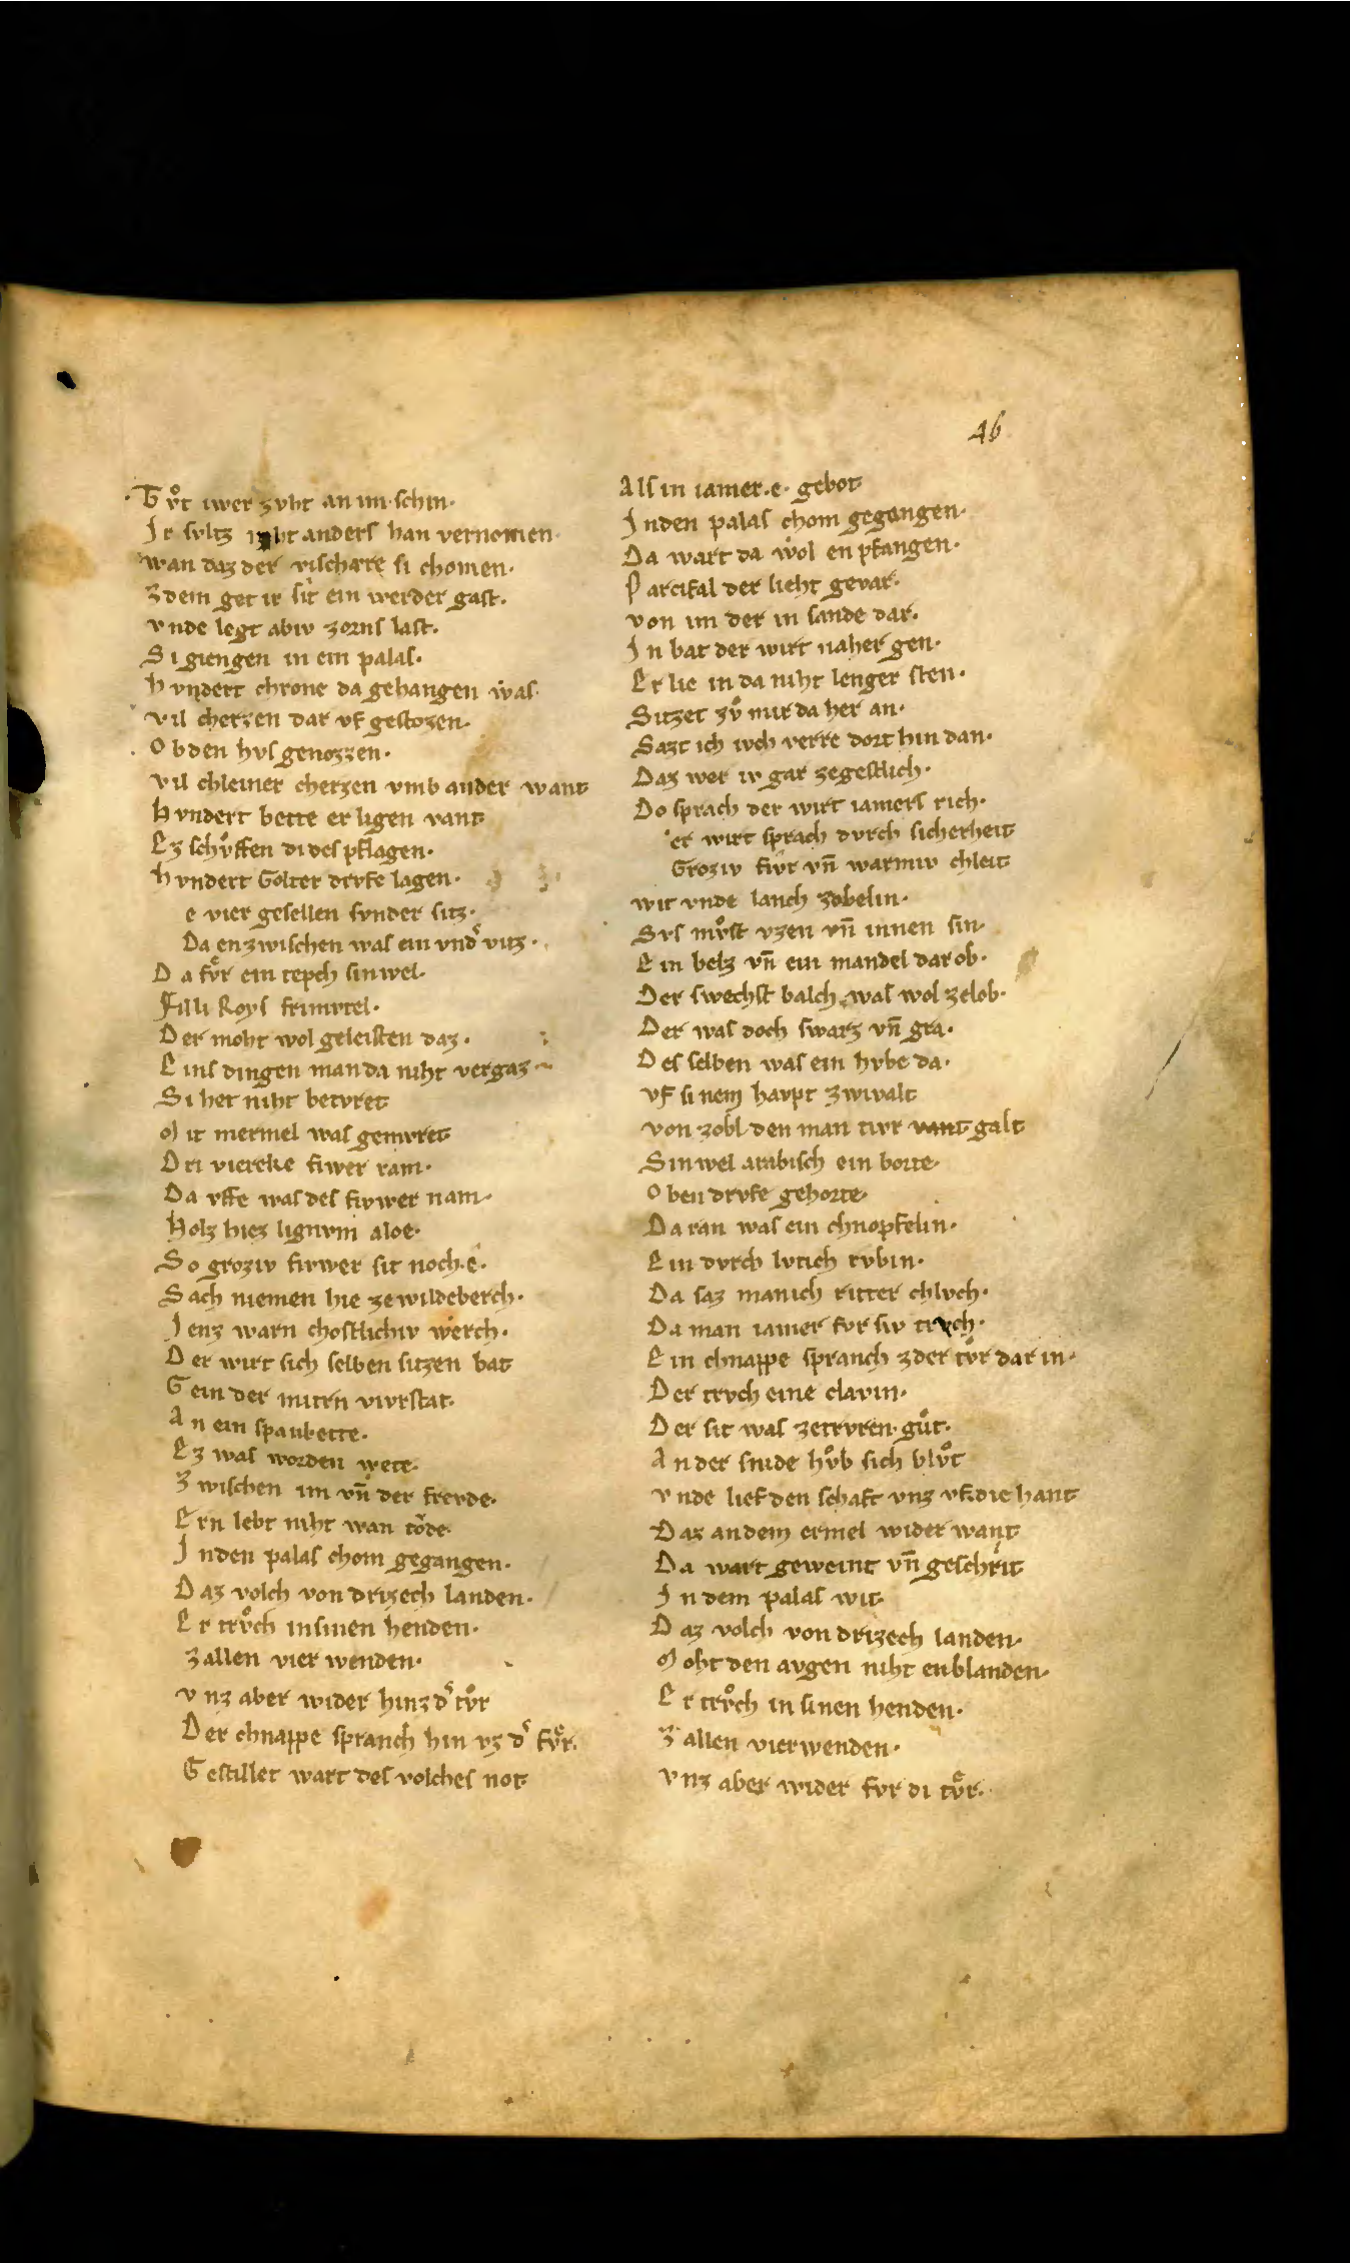 46
Tvͦt iwer zvht an im schin·
Ir svltz niht anders han vernomen·
wan daz der vischære si chomen·
Zdem get ir sit ein werder gast·
vnde legt abiv zorns last·
Si giengen in ein palas·
Hvndert chrone da gehangen was·
vil cherzen dar vf gestozen·
Ob den hvs genozzen·
vil chleiner cherzen vmb ander want
Hvndert bette er ligen vant
Ez schvͦffen di des pflagen·
Hvndert Golter drvfe lagen·
e vier gesellen svnder sitz·
Da enzwischen was ein vnd͛ vitz·
Da fvͤr ein tepch sinwel·
Filli Roys frimvtel·
Der moht wol geleisten daz·
Eins dingen man da niht vergaz·
Si het niht betvret
Mit mermel was gemvret
Dri viereke fiwer ram·
Da vffe was des fivwer nam·
Holz hiez lignvm aloe·
So groziv fivwer sit noch·e·
Sach niemen hie ze wildeberch·
Ienz warn chostlichiv werch·
Der wirt sich selben sitzen bat
Gein der mittn vivrstat·
An ein spanbette·
Ez was worden wete·
Zwischen im vn̄ der frevde·
Ern lebt niht wan tôde·
Inden palas chom gegangen·
Daz volch von drizech landen·
Er trvͦch in sinen henden·
Zallen vier wenden·
vnz aber wider hinz d͛ tvͦr
Der chnappe spranch hin vz d͛ fvͤr·
Gestillet wart des volches not
Als in iamer·e· gebot
Inden palas chom gegangen·
Da wart da wol enpfangen·
Parcifal der lieht gevar·
von im der in sande dar·
In bat der wirt naher gen·
Er lie in da niht lenger sten·
Sitzet zvͦ mir da her an·
Sazt ich iwch verre dort hin dan·
Daz wer iv gar zegestlich·
Do sprach der wirt iamers rich·
er wirt sprach dvrch sicherheit
Groziv fiwr vn̄ warmiv chleit
wit vnde lanch zobelin·
Svs mvͦst vzen vn̄ innen sin·
Ein belz vn̄ ein mandel dar ob·
Der swechst balch was wol zelob·
Der was doch swarz vn̄ gra·
Des selben was ein hvbe da·
vf sinem havpt zwivalt
von zobl den man tivr vant galt
Sinwel arabisch ein borte·
Oben drvfe gehorte·
Daran was ein chnopfelin·
Ein dvrch lvtich rvbin·
Da saz manich ritter chlvch·
Da man iamer fvr siv trvch·
Ein chnappe spranch zder tvͦr dar in·
Der trvch eine glavin·
Der sit was zetrvren gvͦt·
An der snide hvͦb sich blvͦt
vnde lief den schaft vnz vf die hant
Daz an dem ermel wider want
Da wart geweint vn̄ geschrit
In dem palas wit
Daz volch von drizech landen·
Moht den avgen niht enblanden·
Er trvͦch in sinen henden·
Zallen vier wenden·
vnz aber wider fvr di tvͤr·